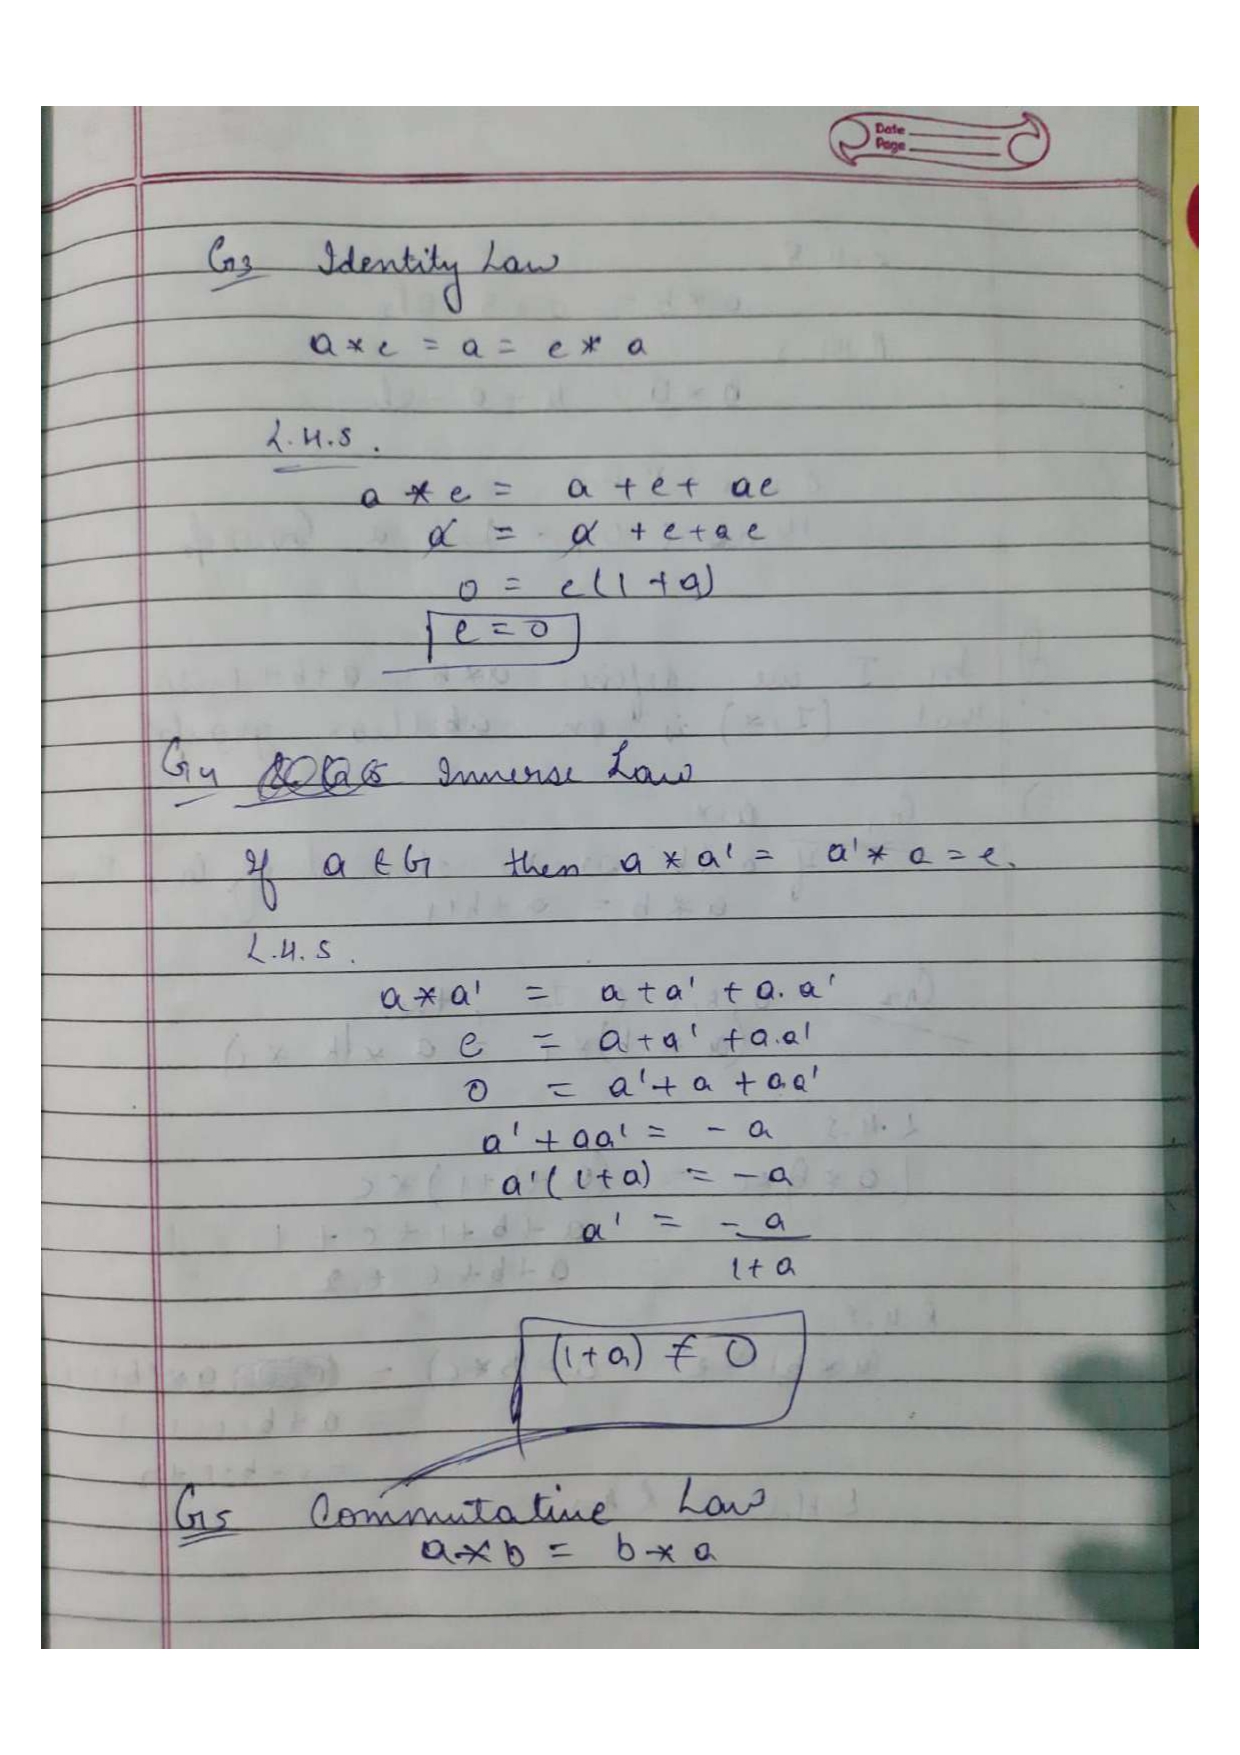 Date
Page
G3 Identity Law
a * e = a = e * a
L.H.S.
a * e = a + e + ae
a = a + e + ae
0 = e(1 + a)
e = 0
G4 Innerse Law
If a ∈ G then a * a' = a' * a = e.
L.H.S.
a * a' = a + a' + a. a'
e = a + a' + a.a'
0 = a' + a + aa'
a' + aa' = - a
a'(1 + a) = - a
a' = - a
1 + a
(1 + a) ≠ 0
G5 Commutative Law
a * b = b * a